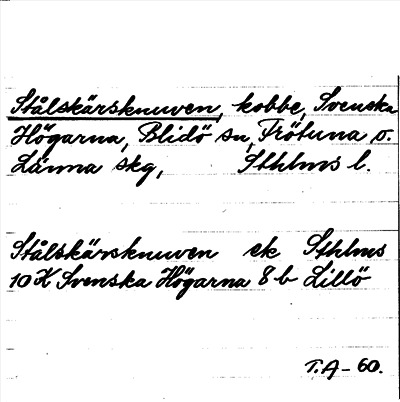 Stålskärsknuven, kobbe, Svenska
Högarna, Blidö sn, Frötuna o.
Länna skg, Sthlms l.
Stålskärsknuven ek Sthlms
10 K Svenska Högarna 8 b Lillö
T.A-60.